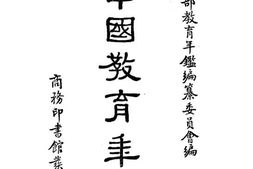 部教育年鑑編纂委員會編
中國教育年
商務印書館發